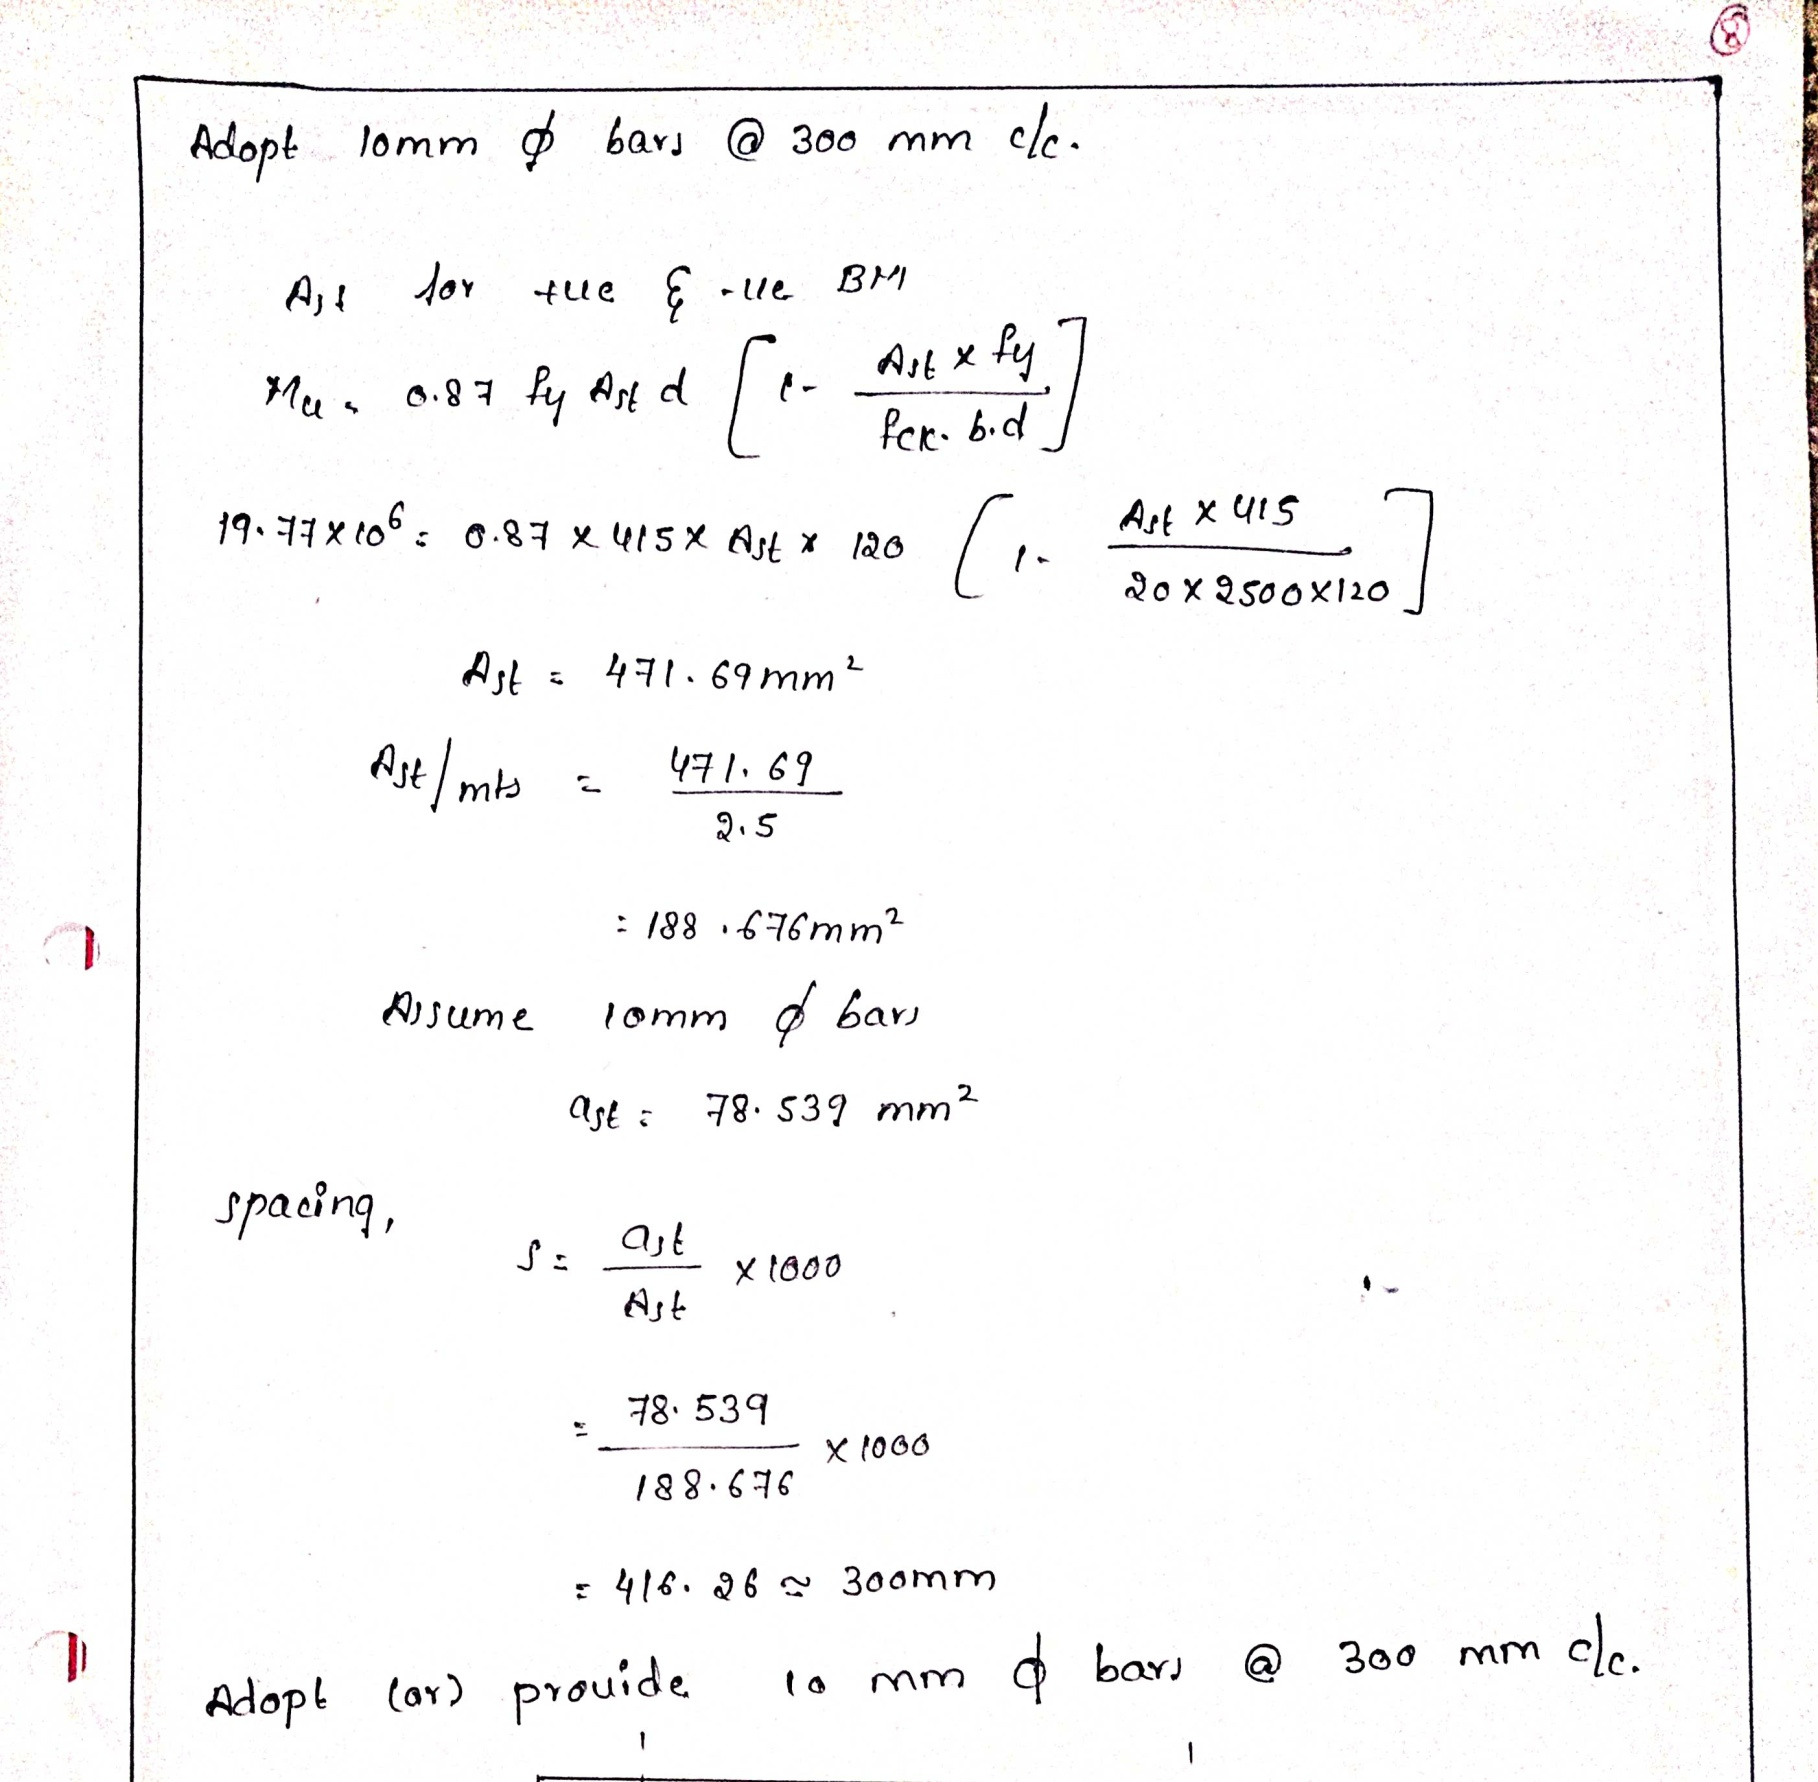 8
Adopt 10mm ϕ bars @ 300 mm c/c.
Ast for +ve & -ve BM
Mu = 0.87 fy Ast d [1- Ast x fy / fck. b.d]
19.77 x 10⁶ = 0.87 x 415 x Ast x 120 [1- Ast x 415 / 20 x 2500 x 120]
Ast = 471.69 mm²
Ast/mts = 471.69 / 2.5
= 188.676 mm²
Assume 10mm ϕ bars
ast = 78.539 mm²
spacing,
S = ast / Ast x 1000
= 78.539 / 188.676 x 1000
= 416.26 ≃ 300mm
Adopt (or) provide 10 mm ϕ bars @ 300 mm c/c.